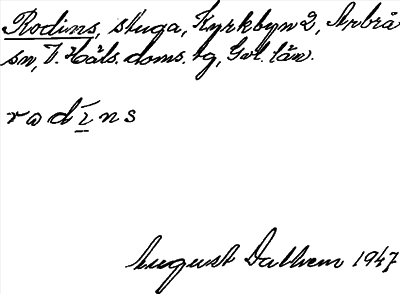 Rodins, stuga, Kyrkbyn 2, Arbrå
sn, V. Häls. doms. tg, Gvl. län.
radīns
August Dalhem 1947